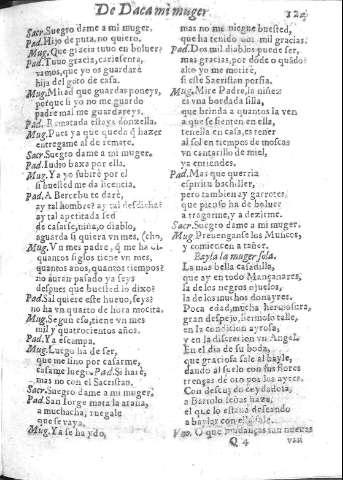 De Daca mi muger.
124
Sacr. Suegro dame a mi muger.
Pad. Hijo de puta, no quiero.
Mug. Que gracia tuuo en boluer?
Pad. Tuuo gracia, cariesenta,
vamos, que yo os guardarè
hija del goto de casa.
Mug. Mirad que guardas poneys,
porque si yo no me guardo
padre mal me guardareys.
Pad. Rematada estaya donzella.
Mug. Pues ya que queda q̃ hazer
entregame al de remate.
Sacr. Suegro dame a mi muger.
Pad. Iudio baxa por ella.
Mug. Ya yo subirè por el
si buested me da licencia.
Pad. A Bercebu te darè,
ay tal hombre? ay tal desdicha?
ay tal apetitada sed
de casarse, niña, o diablo,
aguarda si quiera vn mes, (cho,
Mug. Vn mes padre, q̃ me ha
quantos siglos tiene vn mes,
quantos anos, quantos tiempos?
no auran pasado ya seys
despues que buested lo dixo?
Pad. Sal quiere este hueuo, seys?
no ha vn quarto de hora mocita.
Mug. Segun eso, tiene vn mes
mil y quatrocientos años.
Pad. Ya escampa.
Mug. Luego ha de ser,
que me lino por casarme,
casame luego. Pad. Si harè,
mas no con el Sacristan.
Sacr. Suegro dame a mi muger.
Pad. San Iorge mata la araña,
a muchacha, ruegale
que se vaya.
Mug. Ya se ha ydo,
mas no me niegue buested,
que ha tenido dos mil gracias.
Pad. Dos mil diablos puede ser,
mas gracias, por dòde o quãdo?
alto yo me morirè,
si este Sacristan persia.
Mug. Mire Padre, la niñez
es vna bordada silla,
que brinda a quantos la ven
a que se sienten en ella,
tenella en casa, es tener
al sol en tiempos de moscas
vn cantarillo de miel,
ya entiendes.
Pad. Mas que querria
espiritu bachiller,
pero tambien ay garrotes,
que picuso ha de boluer
a tragarme, y a dezirme.
Sacr. Suegro dame a mi muger.
Mug. Preuenganse los Musicos,
y comiencen a tañer.
Bayla la muger sola.
La mas bella casadilla,
que ay en todo Mançanares,
la de los negros ojuelos,
la de los muchos donayres.
Poca edad, mucha hermosura,
gran despejo, hermoso talle,
en la condicion ayrosa,
y en la discrecion vn Angel.
En el dia de su boda,
que graciosa sale al bayle,
dando al suelo con sus flores
trenças de oro por los ayres.
Con descuydo cuydadoso,
a Bartolo señas haze,
el que lo estaua deseando
a baylar con ella sale.
Vno. O que mudanças tan nueuas
Q 4
van